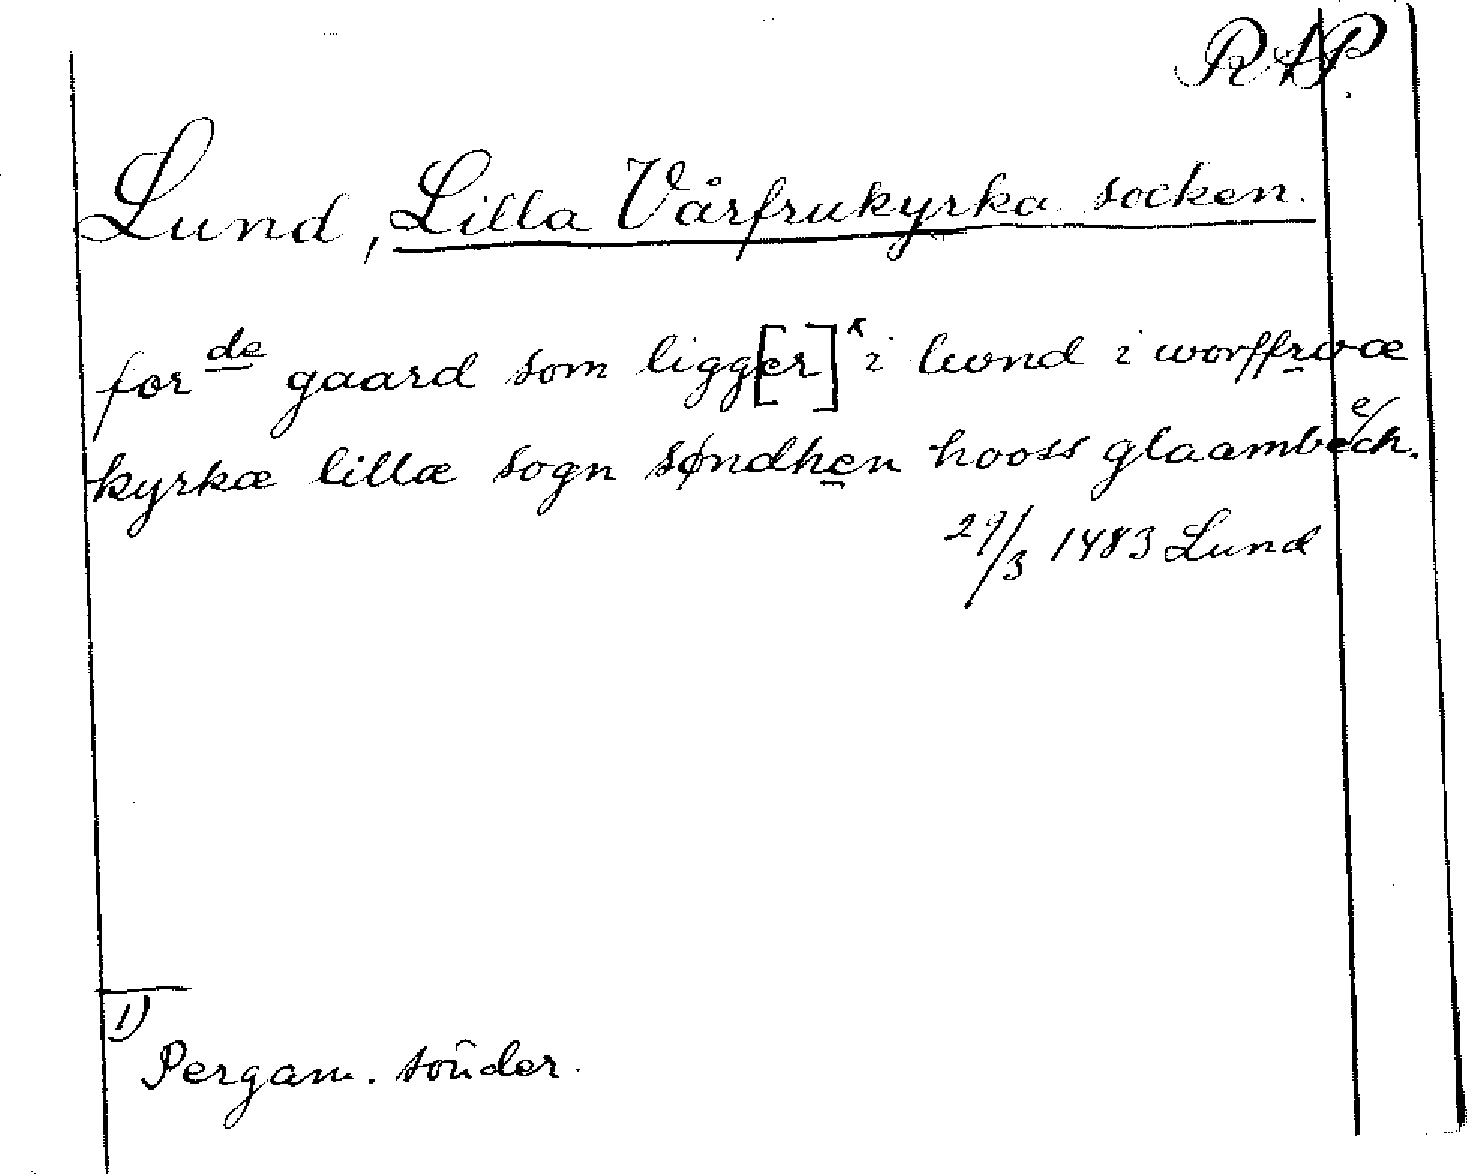 RAP.
Lund, Lilla Vårfrukyrka socken.
for de gaard som ligg[er] i lwnd i worffrwæ
kyrkæ lillæ sogn søndhen hooss glaambeck.
29/3 1483 Lund
1)
Pergam. sönder.